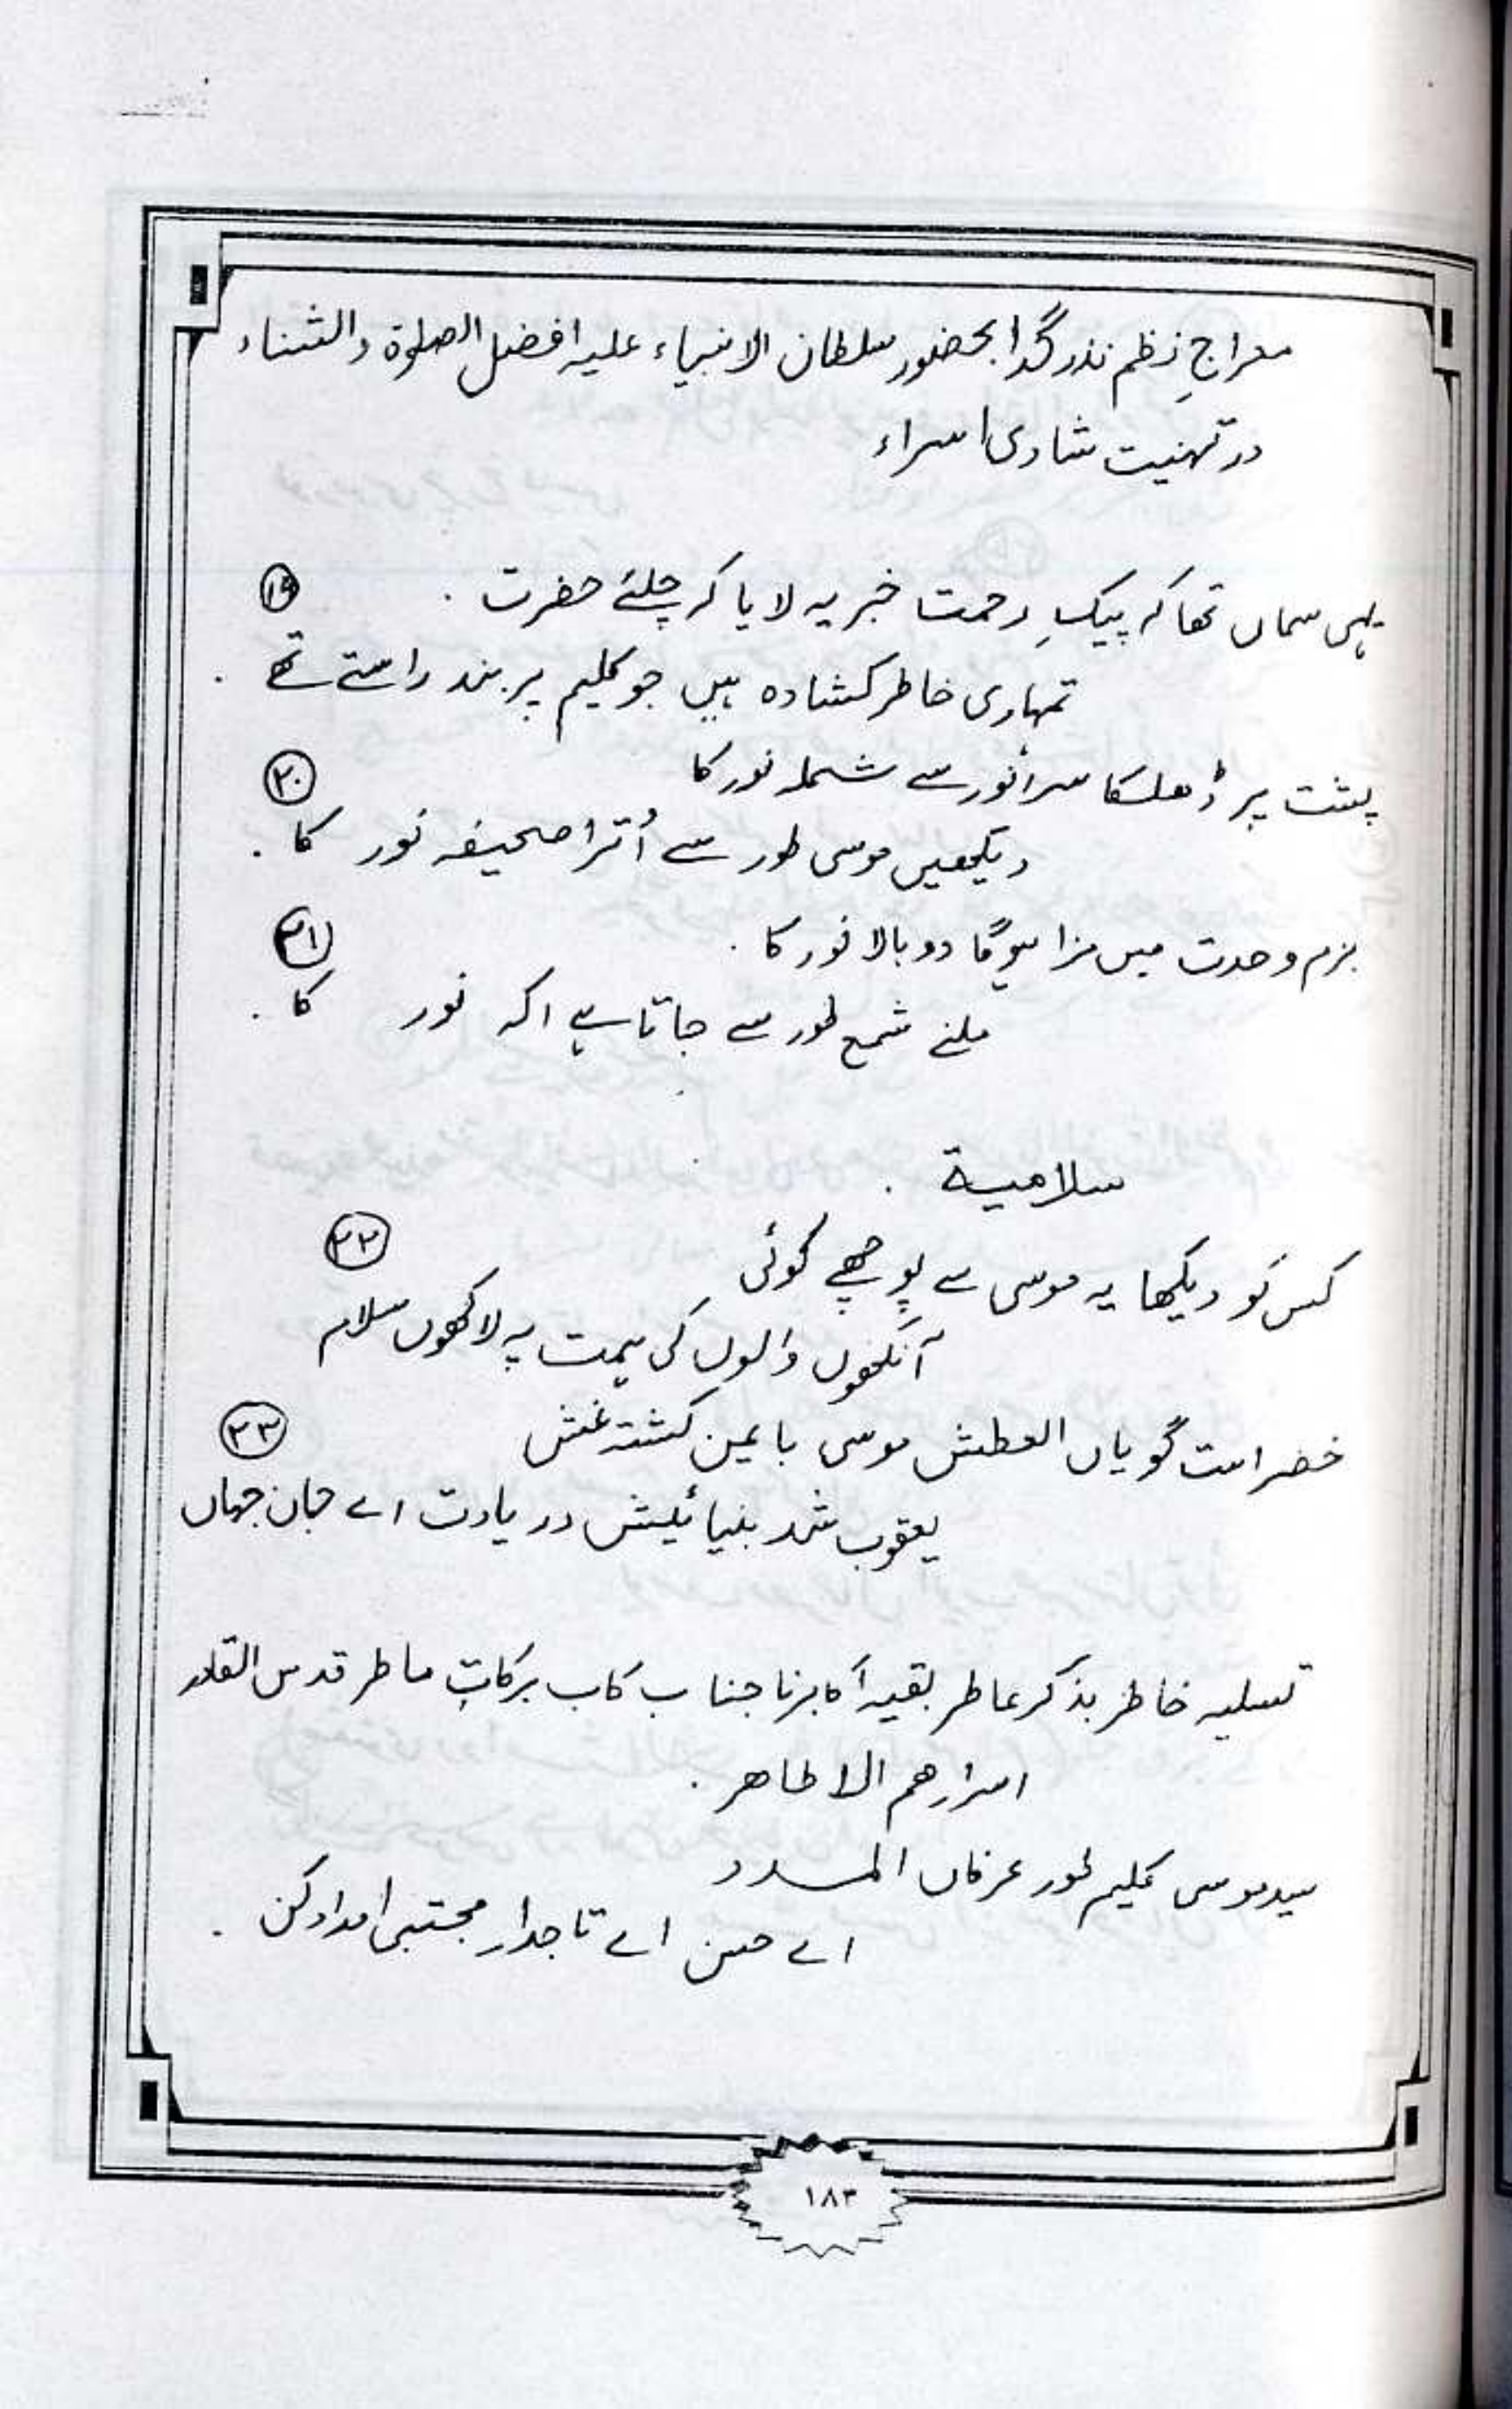 معراجِ نظم نذر گدا بحضور سلطان الانبیاء علیہ افضل الصلوٰۃ والثناء
در تہنیت شادی اسراء
یہی سماں تھا کہ پیکِ رحمت خبر یہ لایا کہ چلئے حضرت . ۱۹
تمہاری خاطر کشادہ ہیں جو کلیم پر بند راستے تھے .
پشت پر ڈھلکا سر انور سے شملہ نور کا ۲۰
دیکھیں موسی طور سے اُترا صحیفہ نور کا .
بزم وحدت میں مزا ہوگا دوبالا نور کا . ۲۱
ملنے شمع طور سے جاتا ہے اکہ نور کا .
سلامیة .
کس کو دیکھا یہ موسی سے پوچھے کوئی ۲۲
آنکھوں والوں کی ہمت پہ لاکھوں سلام
خضر است گویاں العطش موسی بایمن گشتہ غش ۲۳
یعقوب شد بنیائیش در یادت اے جان جہاں
تسلیہ خاطر بذکر عاطر بقیہ اکابرنا جناب کاب برکاتِ ماطر قدس القادر
اسرارھم الاطاھر .
سید موسی کلیم طور عرفاں المدد
اے حسن اے تاجدارِ مجتبی امداد کن .
۱۸۳